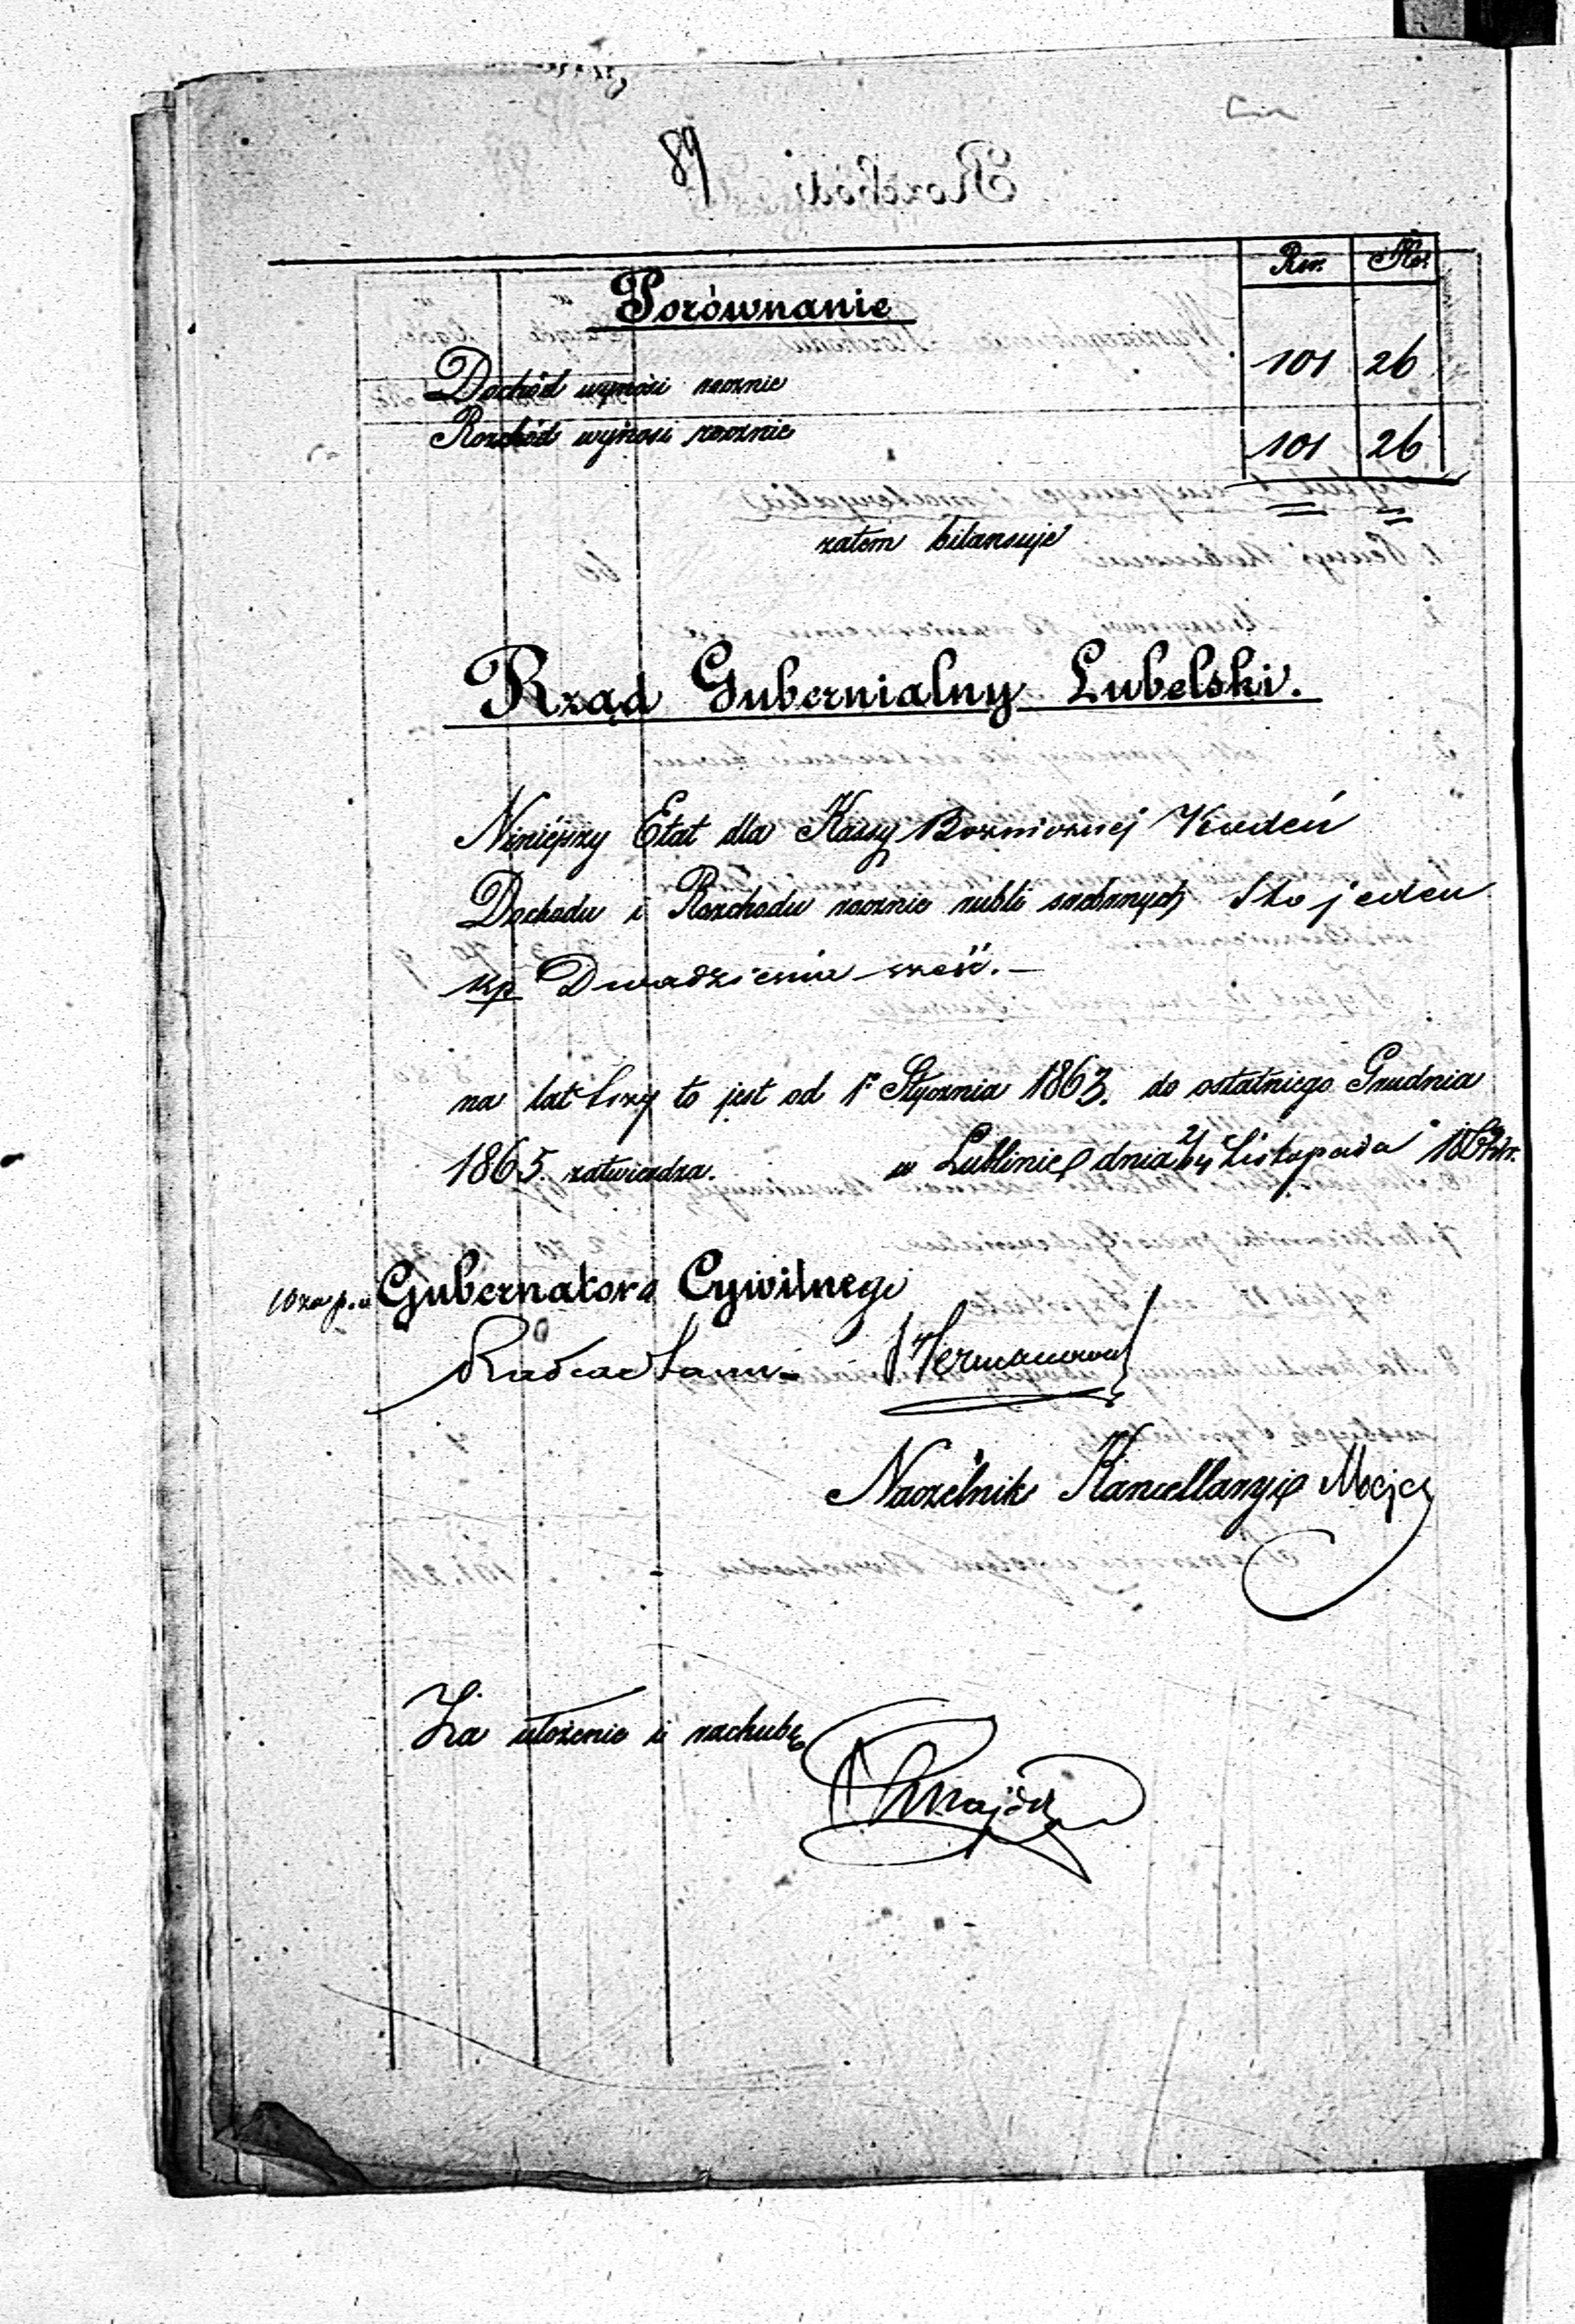 89
Rsr. Kop.
Porównanie
Dochód wynosi rocznie 101 26
Rozchód wynosi rocznie 101 26
zatem bilansuje
Rząd Gubernialny Lubelski.
Niniejszy Etat dla Kassy Boznicznej Kodeń
Dochodu i Rozchodu rocznie rubli srebrnych Sto jeden
kp Dwadzieścia sześć.—
na lat trzy to jest od 1º Stycznia 1863. do ostatniego Grudnia
1865. zatwierdza. w Lublinie dnia Listopada
Gubernatora Cywilnego
Radca Hermanowa
Naczelnik Kancellaryi
Za ułożenie i rachubę